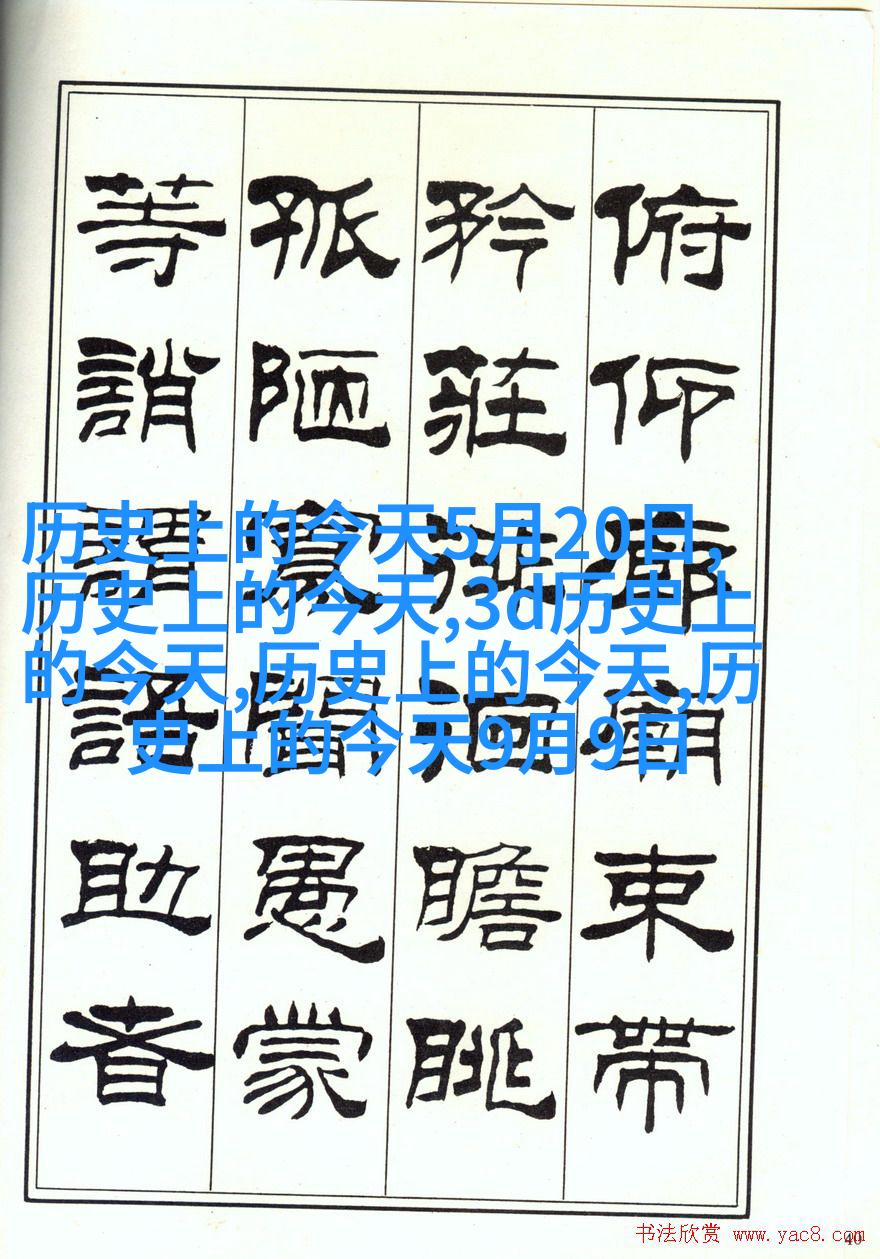 俯仰廊廟束帶
矜莊徘徊瞻眺
孤陋寡聞愚蒙
等誚謂語助者
历史上的今天5月20日,
历史上的今天,3d历史上
的今天,历史上的今天,历
史上的今天9月9日
书法欣赏 www.yac8.com
40